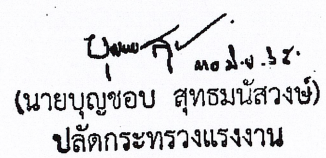 ๓๐ มิ.ย. ๖๕
(นายบุญชอบ สุทธมนัสวงษ์)
ปลัดกระทรวงแรงงาน